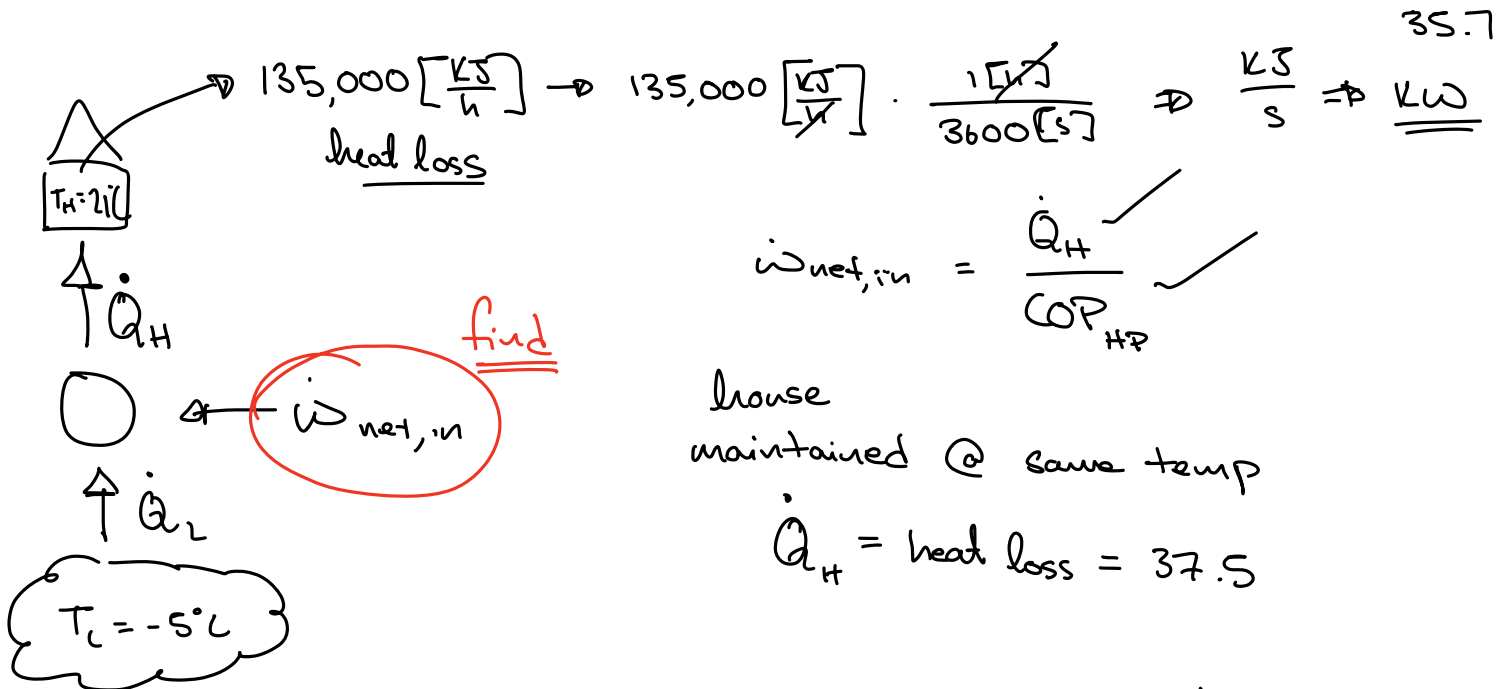 35.7
135,000 [KJ/h] → 135,000 [KJ/h] · 1[h]/3600[s] ⇒ KJ/s ⇒ KW
heat loss
T_H = 21°C
Q̇_H
ẇ_net,in = Q̇_H / COP_HP
find
ẇ_net,in
house
maintained @ same temp
Q̇_L
Q̇_H = heat loss = 37.5
T_L = -5°C